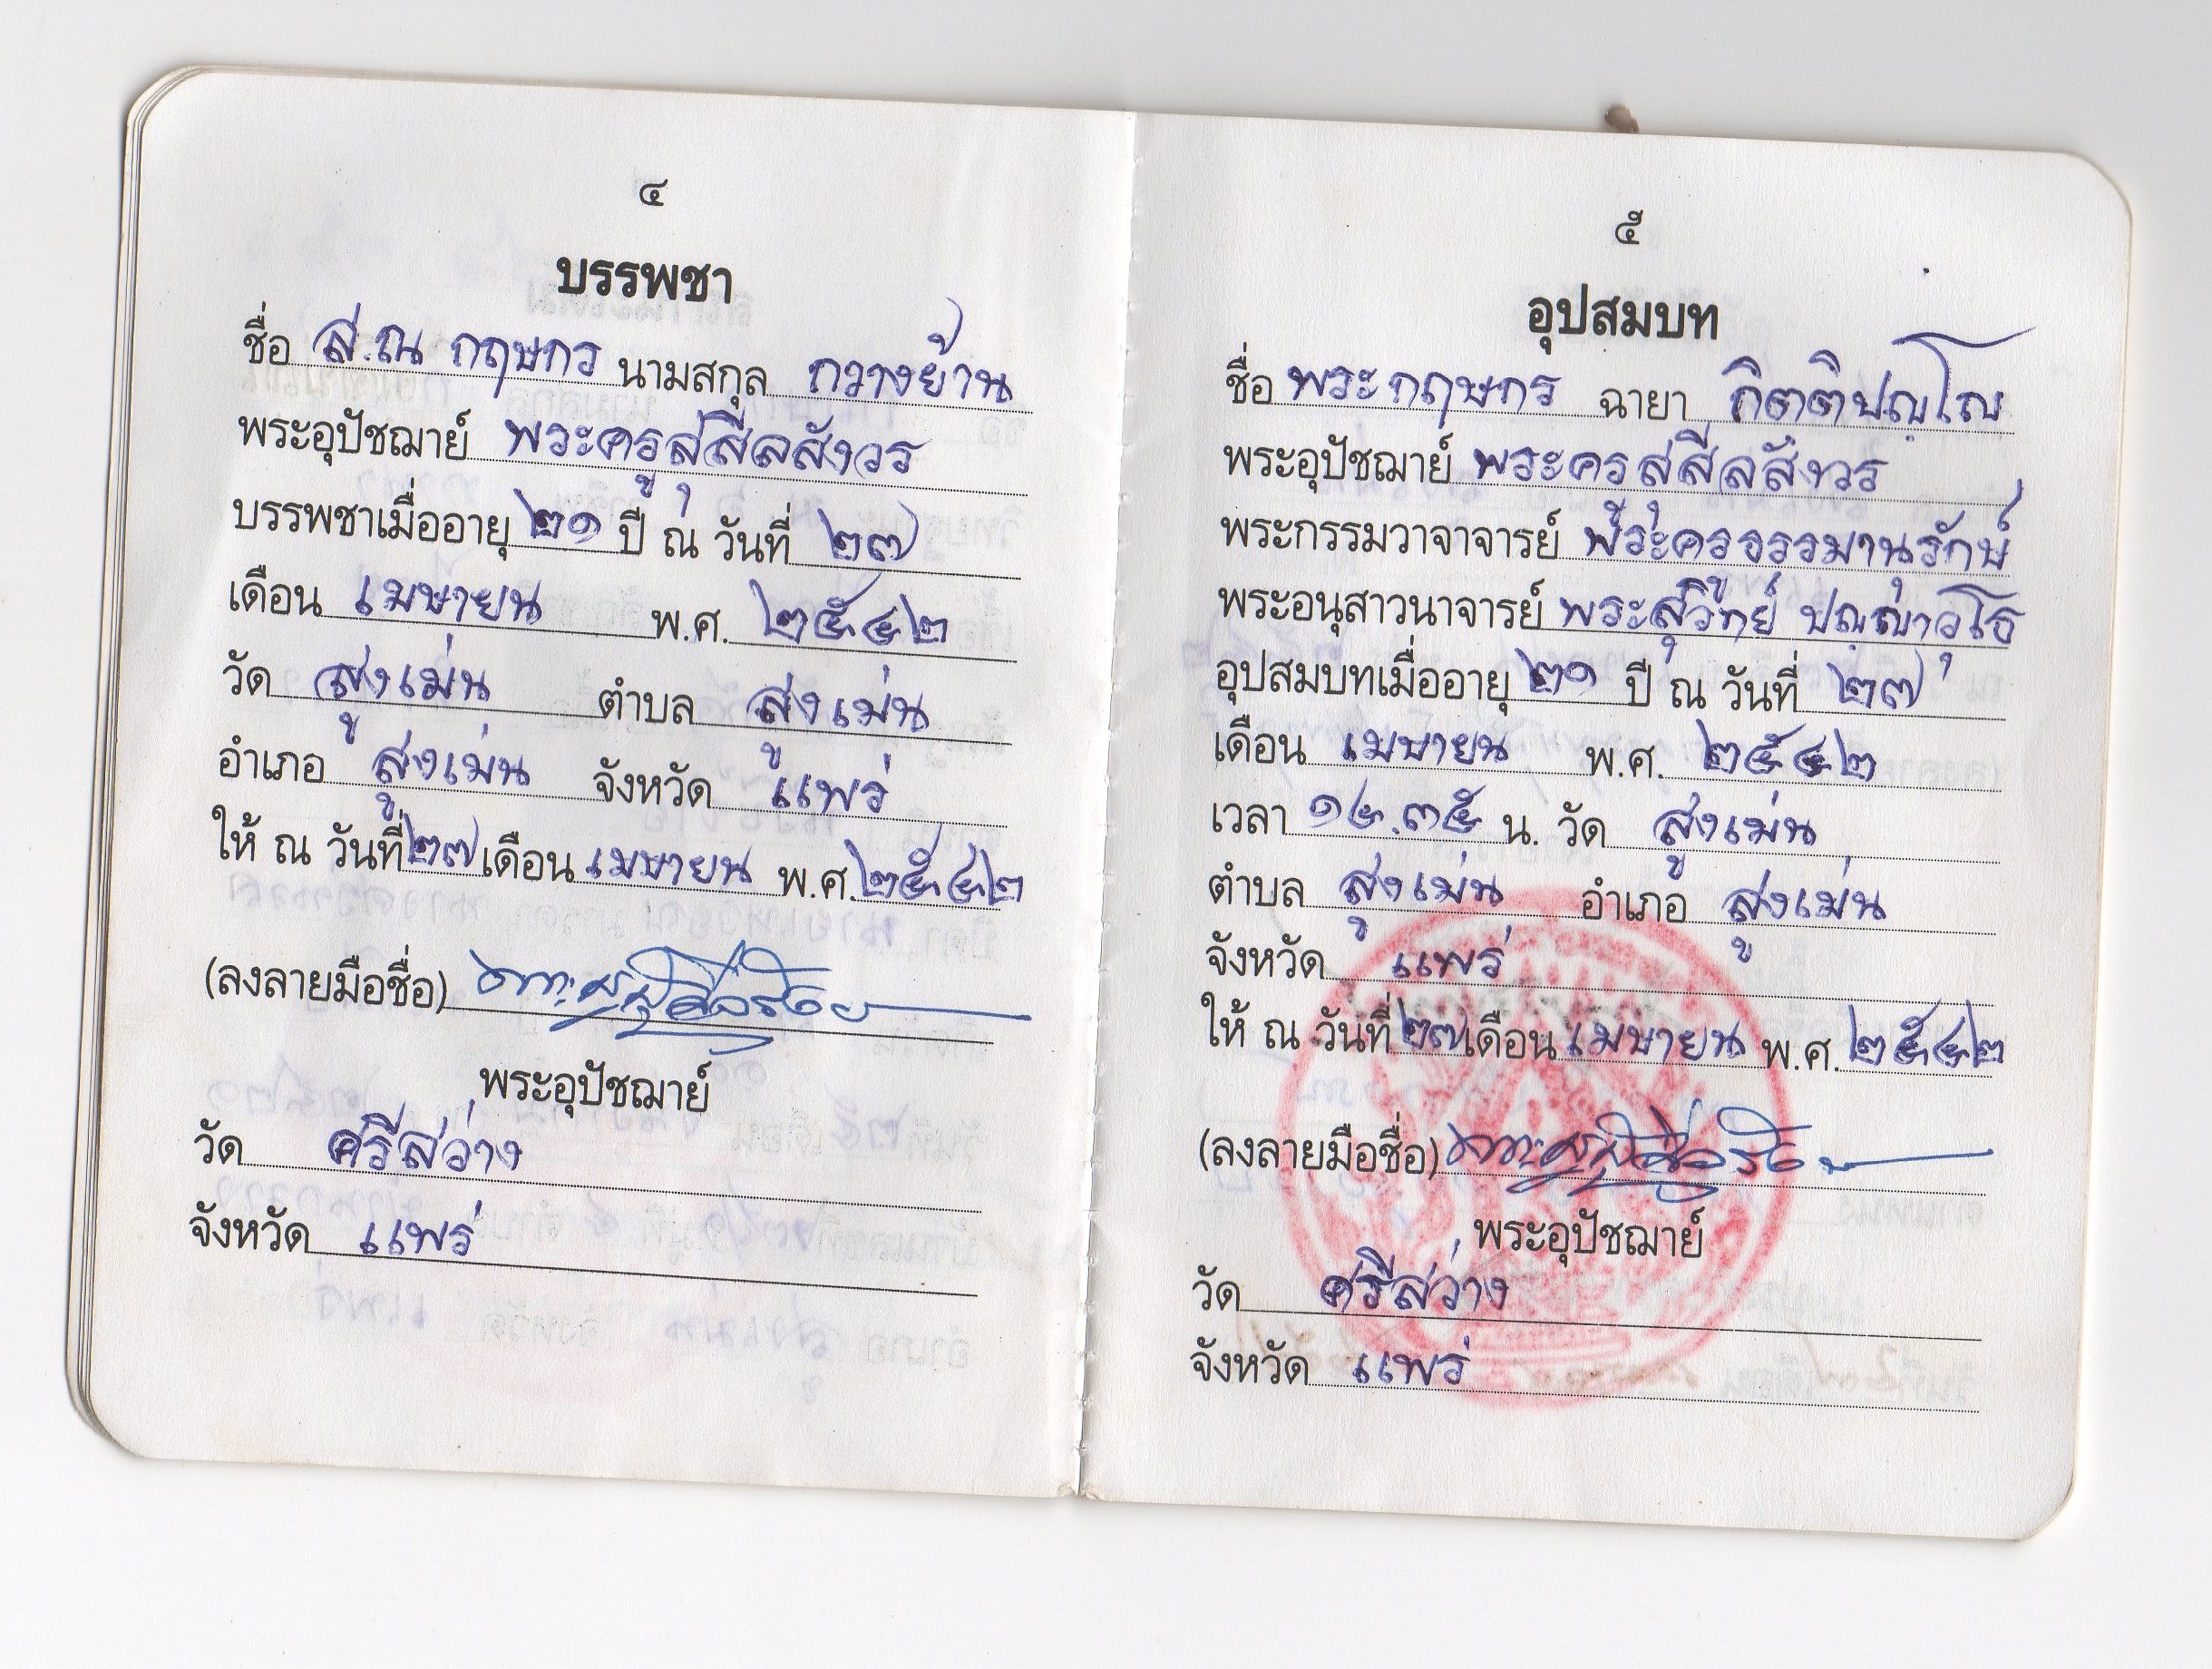 ๔
บรรพชา
ชื่อ ส.ณ กฤษกร นามสกุล กวางย้าน
พระอุปัชฌาย์ พระครูสุสีลสังวร
บรรพชาเมื่ออายุ ๒๑ ปี ณ วันที่ ๒๗
เดือน เมษายน พ.ศ. ๒๕๔๒
วัด สูงเม่น ตำบล สูงเม่น
อำเภอ สูงเม่น จังหวัด แพร่
ให้ ณ วันที่ ๒๗ เดือน เมษายน พ.ศ. ๒๕๔๒
(ลงลายมือชื่อ)
พระอุปัชฌาย์
วัด ศรีสว่าง
จังหวัด แพร่
๕
อุปสมบท
ชื่อ พระกฤษกร ฉายา กิตติปญฺโญ
พระอุปัชฌาย์ พระครูสุสีลสังวร
พระกรรมวาจาจารย์ พระครูธรรมานุรักษ์
พระอนุสาวนาจารย์ พระสุวิทย์ ปญฺญาวุโธ
อุปสมบทเมื่ออายุ ๒๑ ปี ณ วันที่ ๒๗
เดือน เมษายน พ.ศ. ๒๕๔๒
เวลา ๑๔.๓๕ น. วัด สูงเม่น
ตำบล สูงเม่น อำเภอ สูงเม่น
จังหวัด แพร่
ให้ ณ วันที่ ๒๗ เดือน เมษายน พ.ศ. ๒๕๔๒
(ลงลายมือชื่อ)
พระอุปัชฌาย์
วัด ศรีสว่าง
จังหวัด แพร่